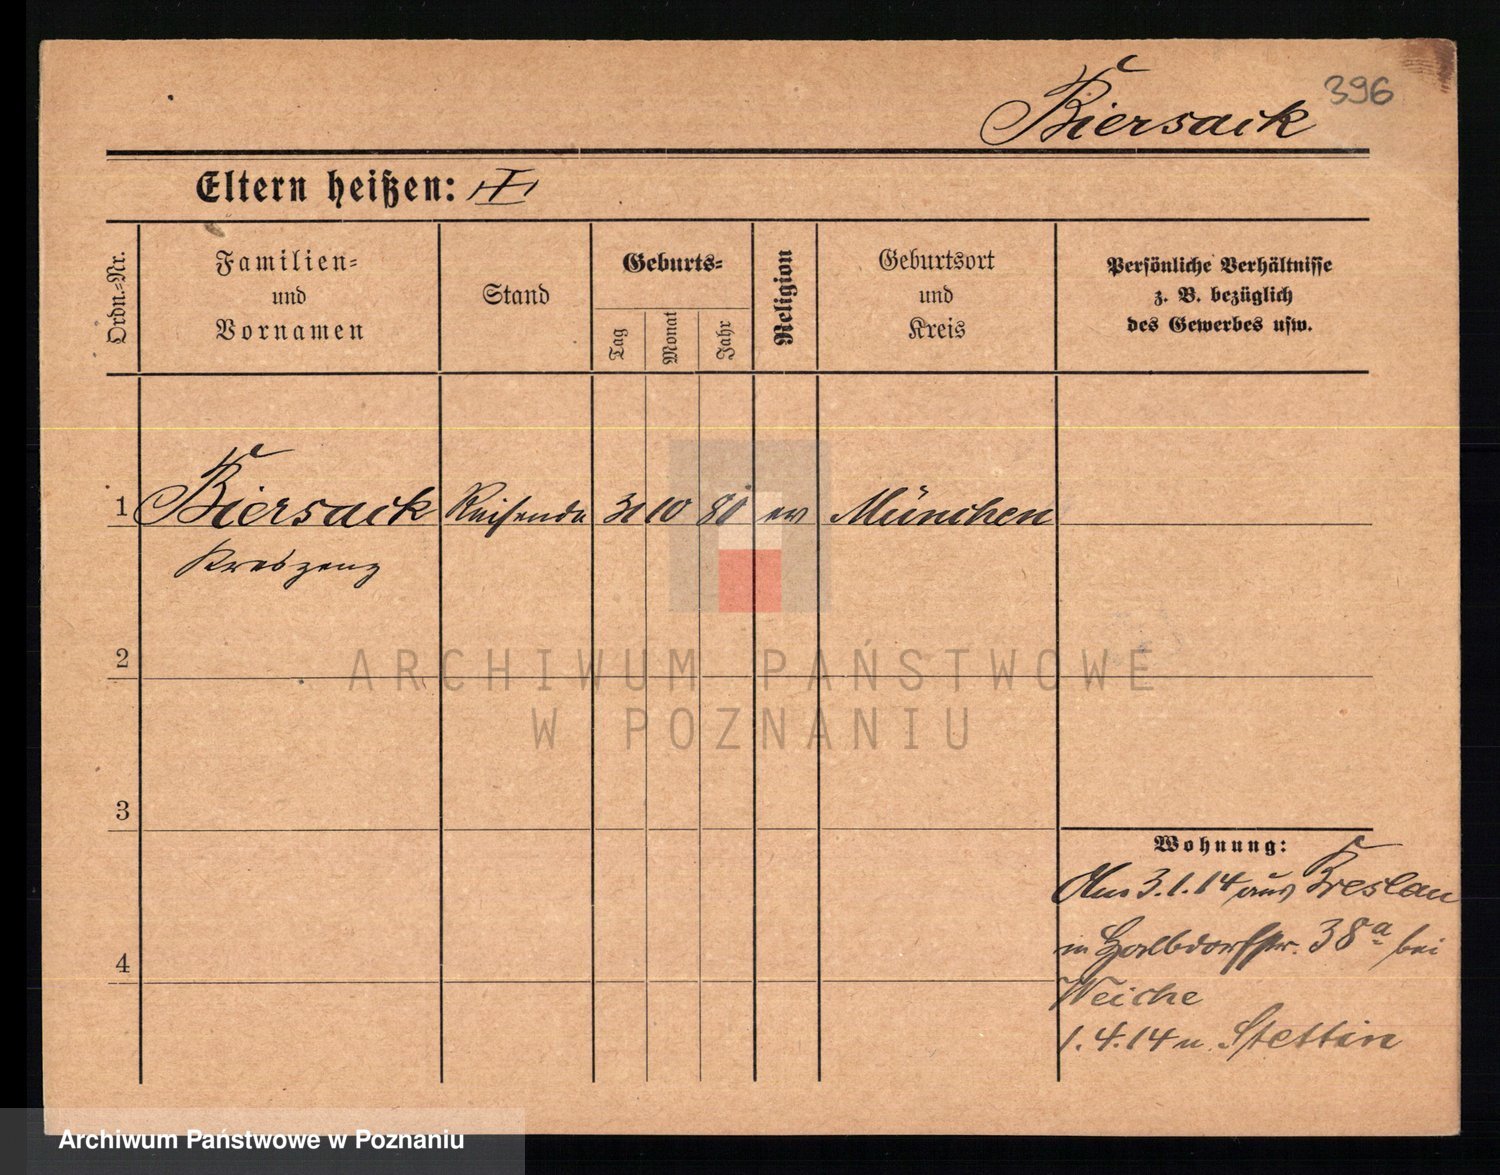 396
Biersack
Eltern heißen:
Ordn.-Nr.
Familien-
und
Vornamen
Stand
Geburts-
Tag
Monat
Jahr
Religion
Geburtsort
und
Kreis
Persönliche Verhältnisse
z. B. bezüglich
des Gewerbes usw.
1 Biersack Reisende 10 80 ev München
Kreszenz
2
3
4
Wohnung:
3.1.14 aus Breslau
in Halbdorfstr. 38a bei
Weiche
1.4.14 n. Stettin
ARCHIWUM PAŃSTWOWE
W POZNANIU
Archiwum Państwowe w Poznaniu